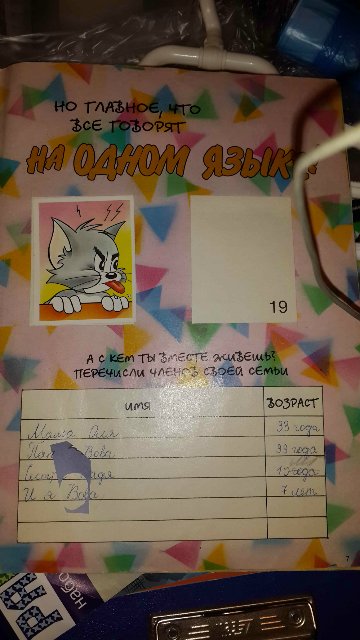 НО ГЛАВНОЕ, ЧТО
ВСЕ ГОВОРЯТ
НА ОДНОМ ЯЗЫК
19
А С КЕМ ТЫ ВМЕСТЕ ЖИВЕШЬ?
ПЕРЕЧИСЛИ ЧЛЕНОВ СВОЕЙ СЕМЬИ
ИМЯ ВОЗРАСТ
Мама Оля 33 года
Вова 33 года
года
И я Вова 7 лет
7
набо